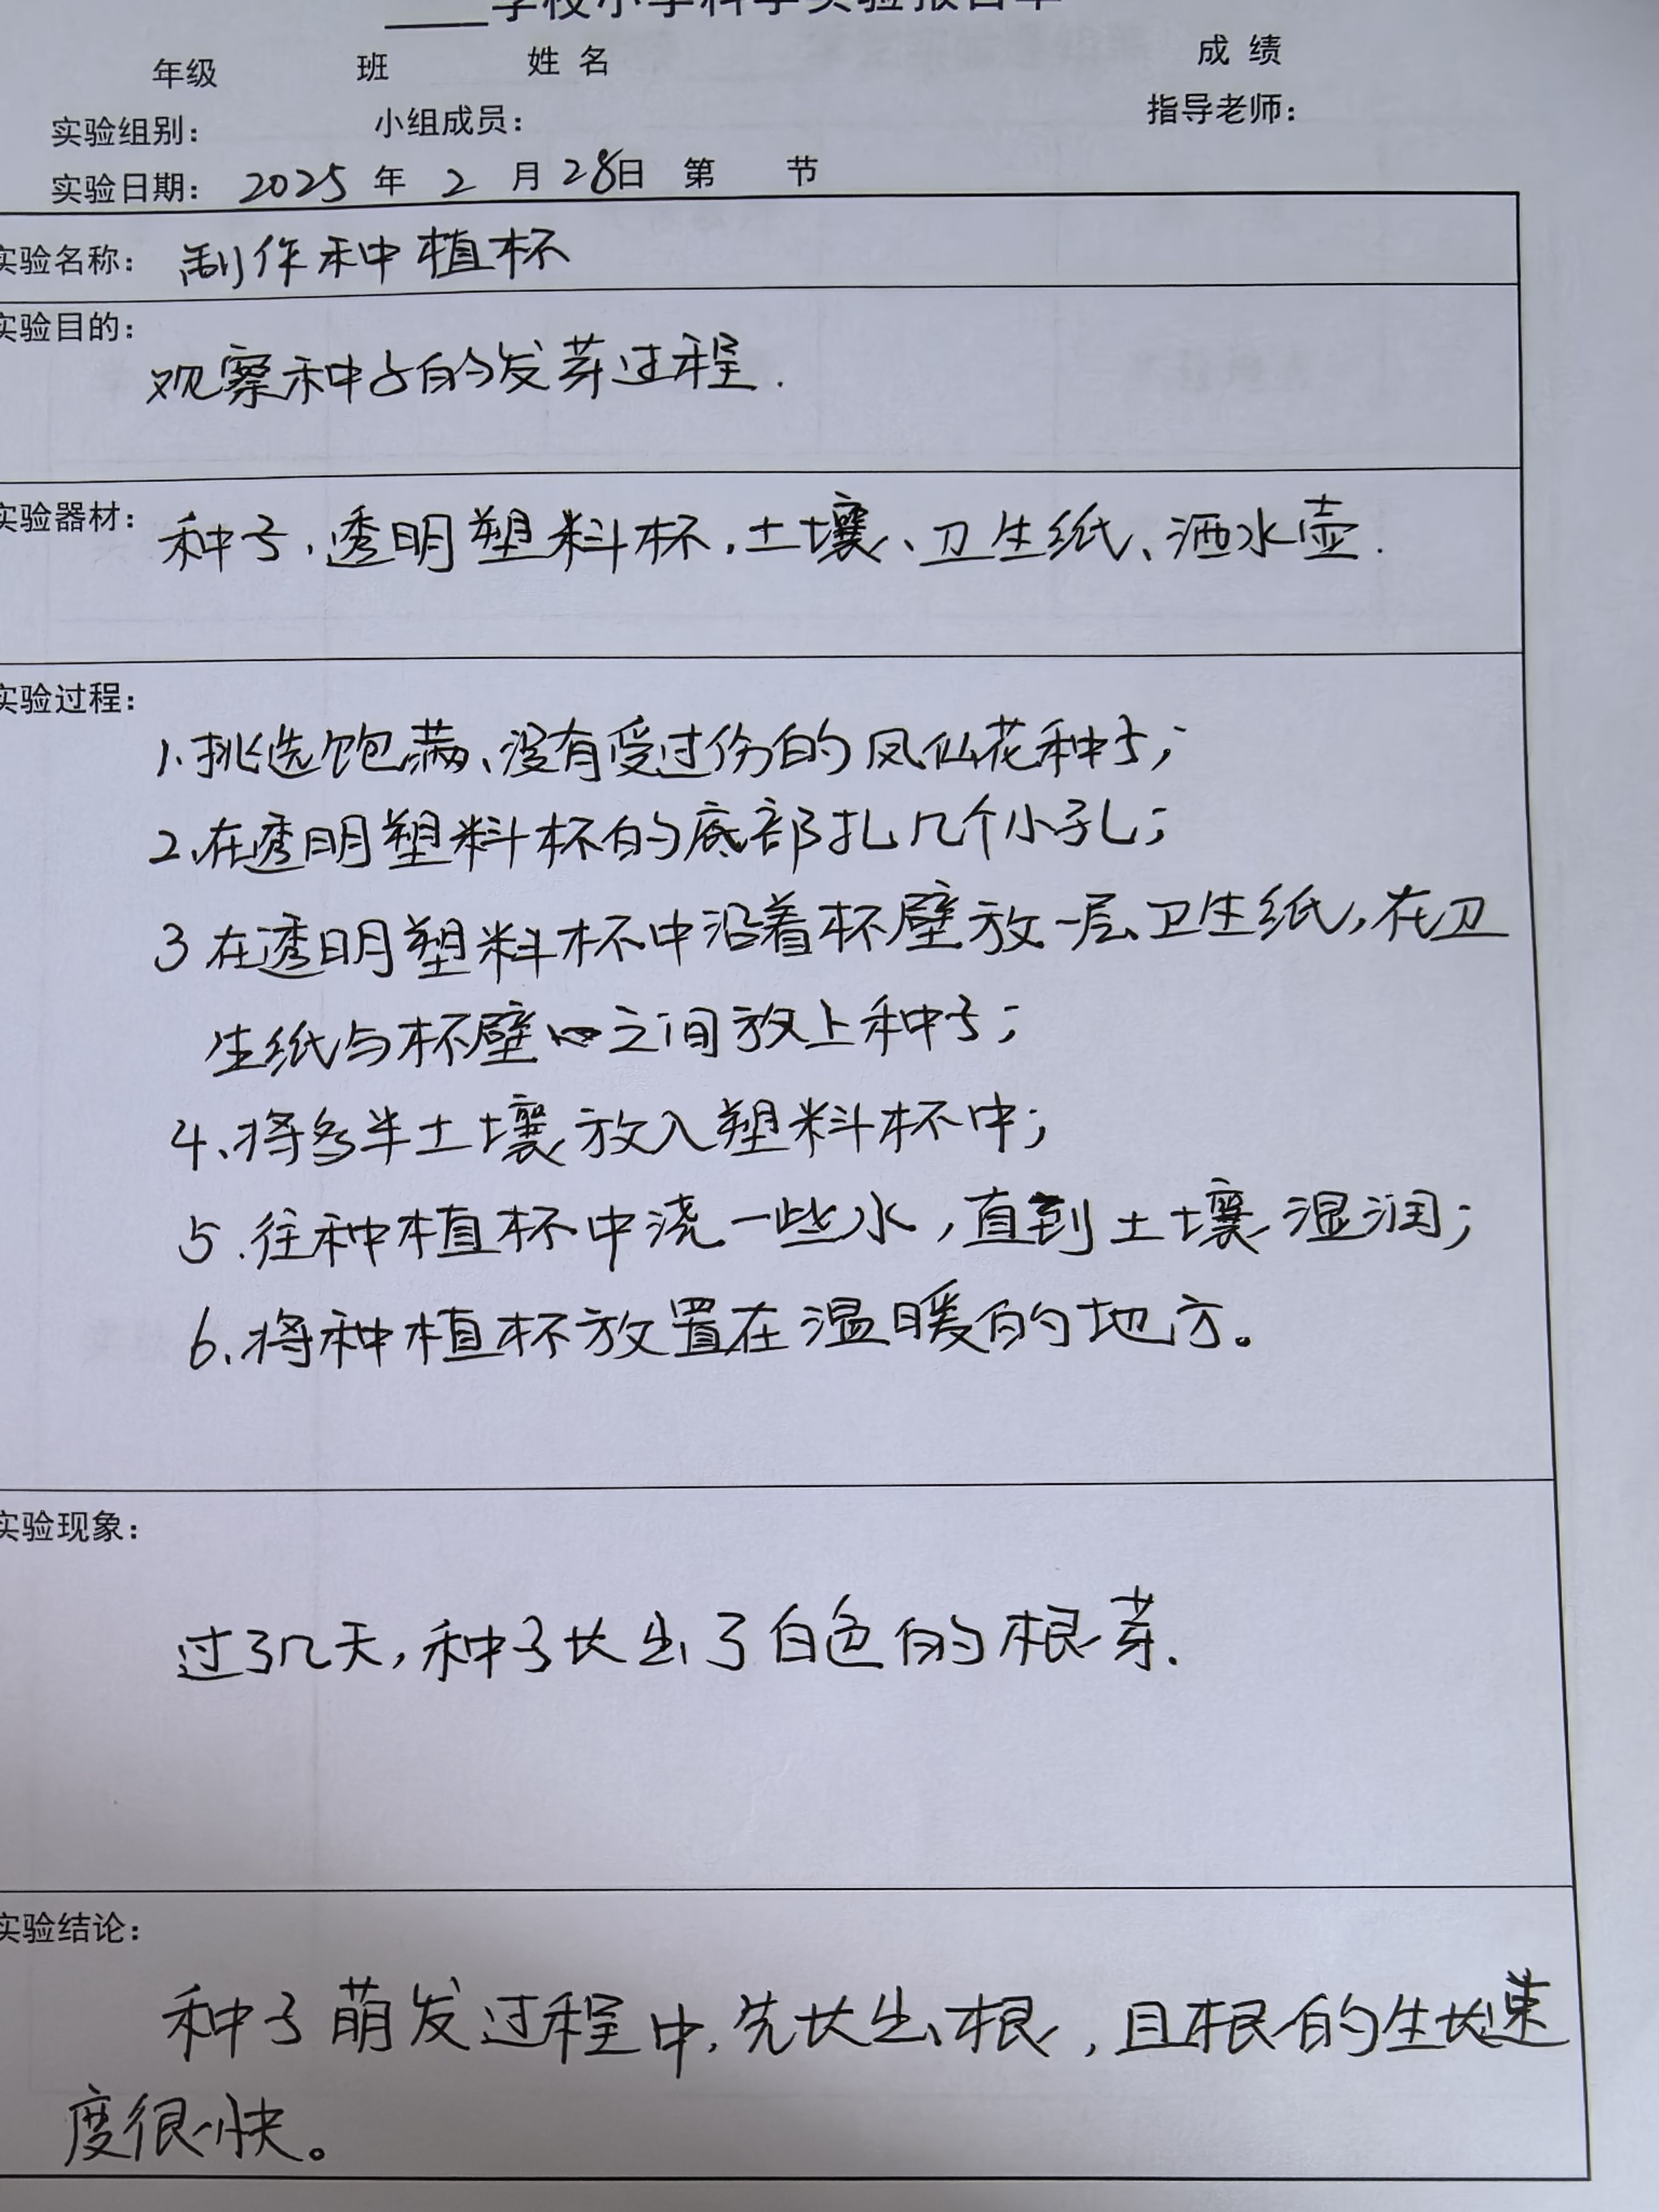 ____学校小学科学实验报告单
年级 班 姓 名 成 绩
实验组别： 小组成员： 指导老师：
实验日期： 2025 年 2 月 28日 第 节
实验名称： 制作种植杯
实验目的：
观察种子的发芽过程.
实验器材： 种子、透明塑料杯、土壤、卫生纸、洒水壶.
实验过程：
1.挑选饱满、没有受过伤的凤仙花种子；
2.在透明塑料杯的底部扎几个小孔；
3 在透明塑料杯中沿着杯壁放一层卫生纸，在卫
生纸与杯壁之间放上种子；
4、将多半土壤放入塑料杯中；
5.往种植杯中浇一些水，直到土壤湿润；
6.将种植杯放置在温暖的地方。
实验现象：
过了几天，种子长出了白色的根芽.
实验结论：
种子萌发过程中，先长出根，且根的生长速
度很快。